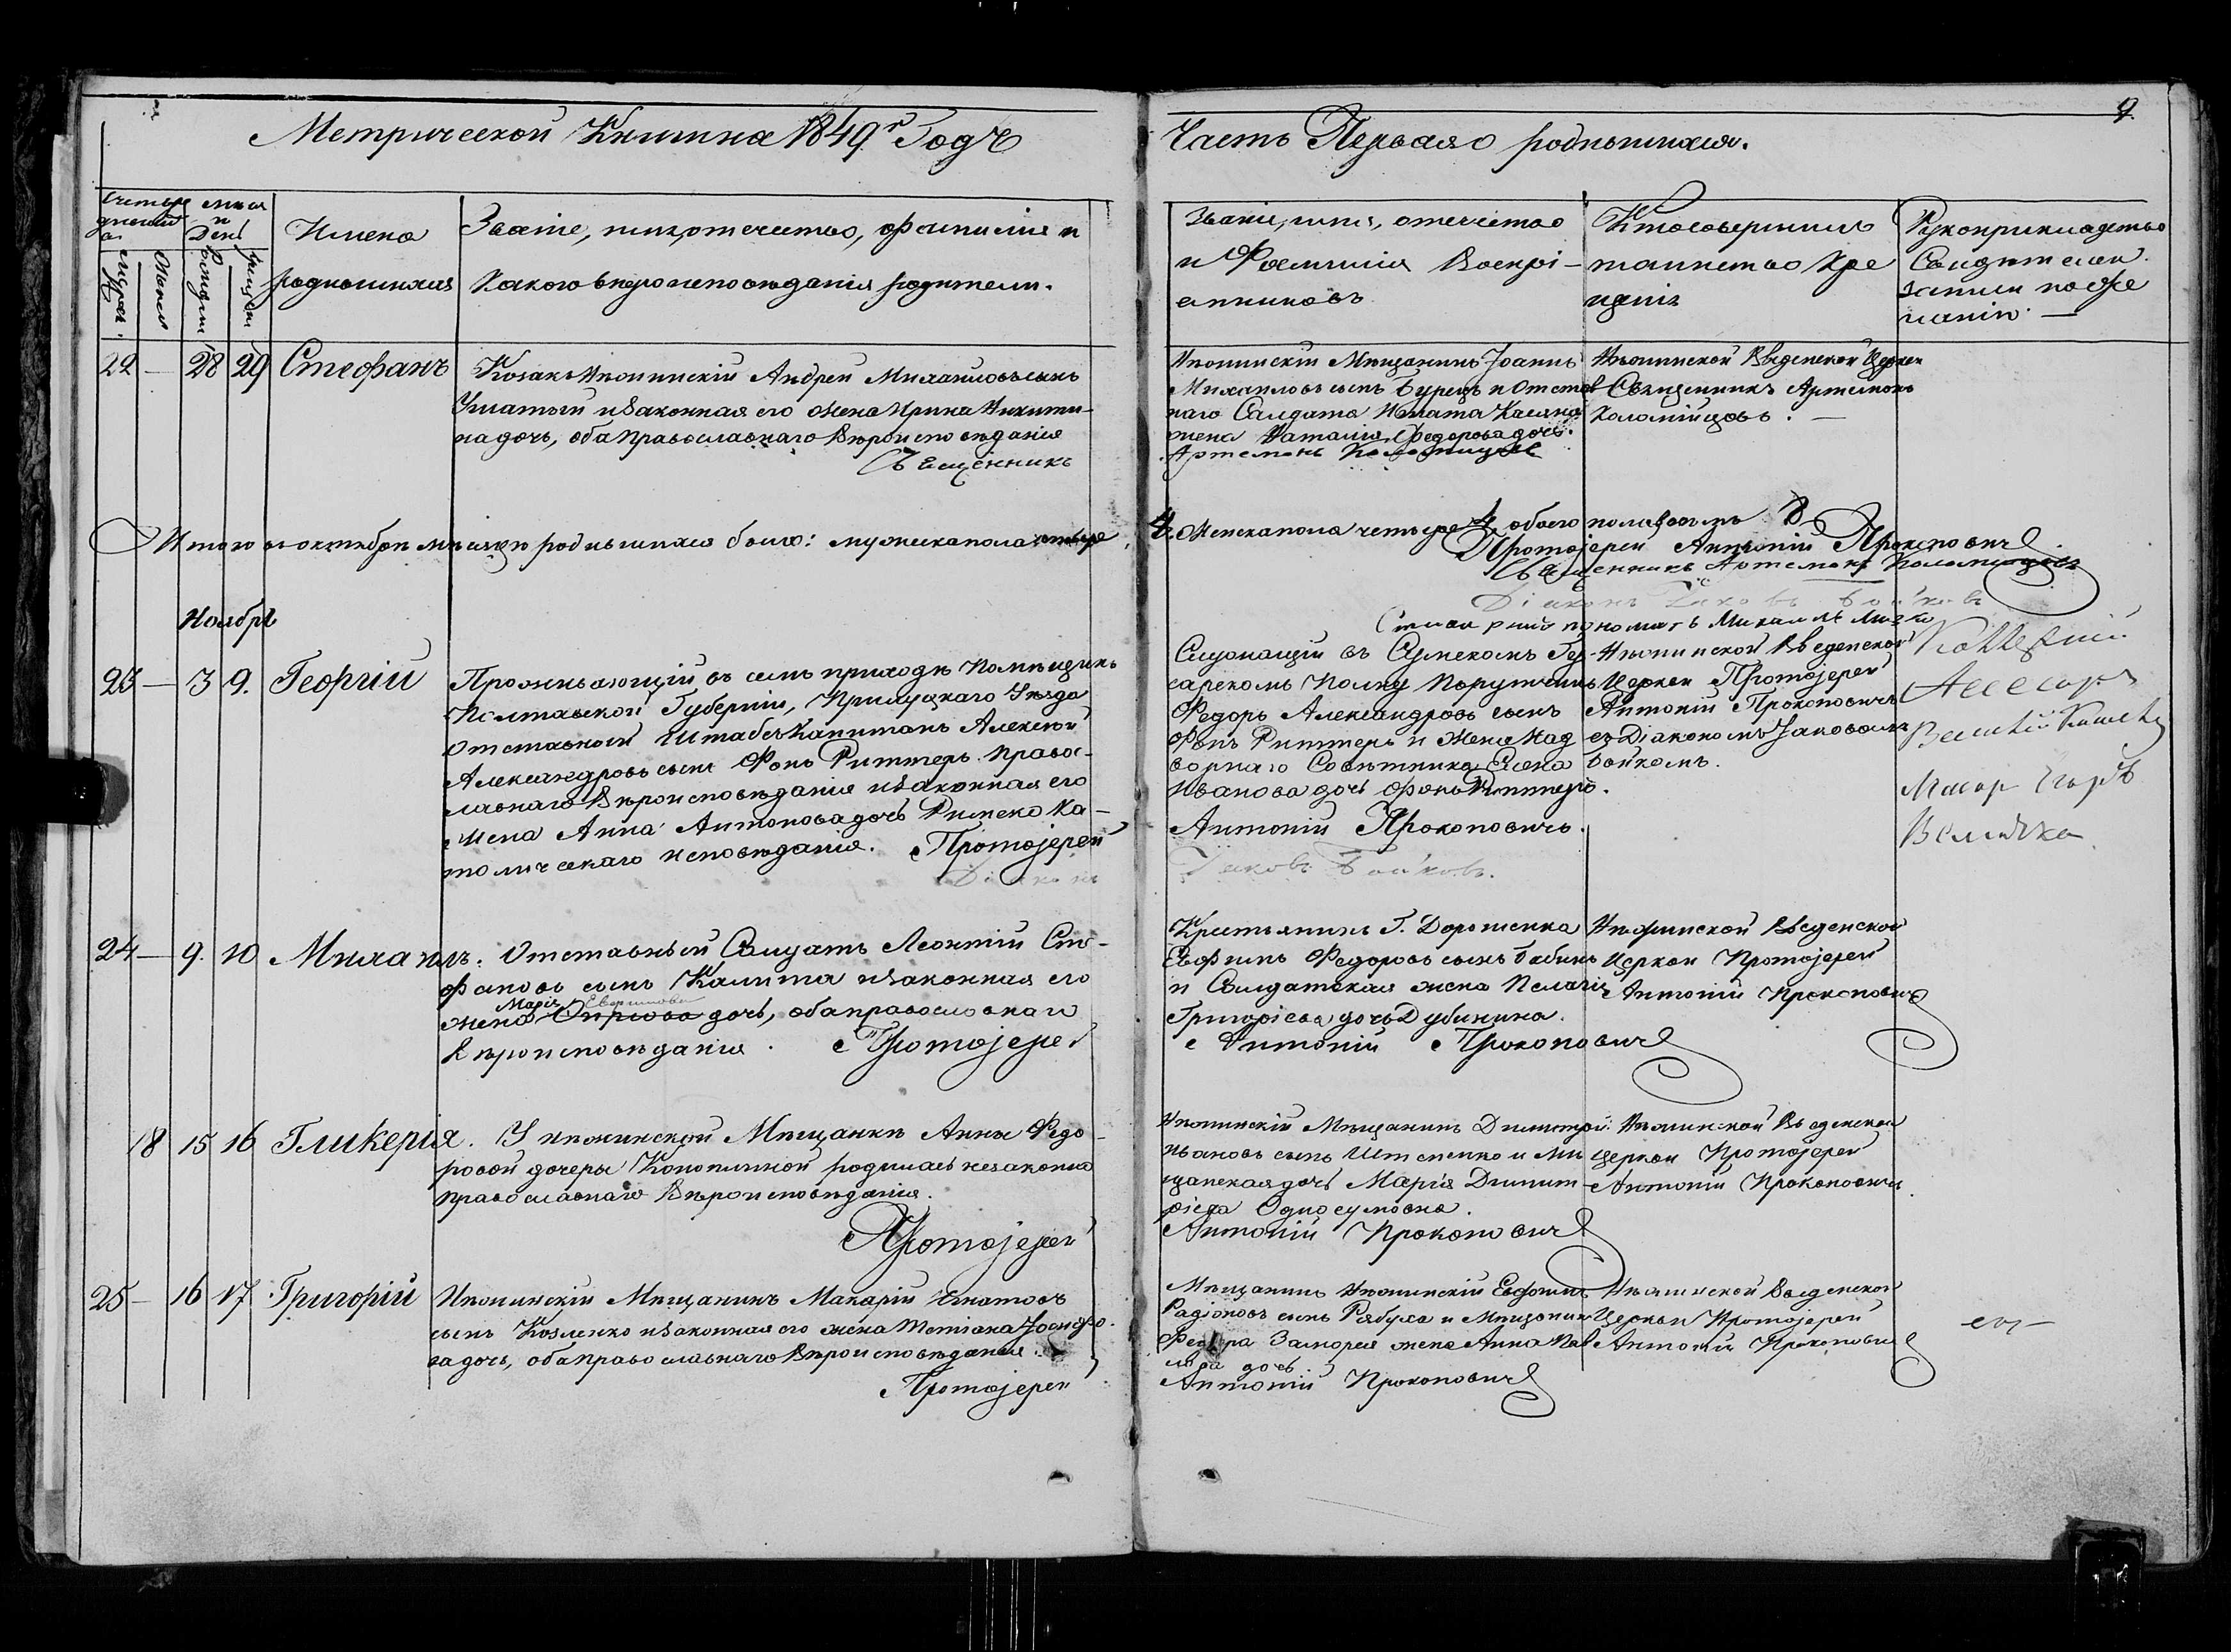 Метрической Книги на 1849й Годъ
Часть Первая о родившихся.
9.
Счетъ родившихся
Мѣсяцъ и День
Имена родившихся
Званіе, имя, отечество, фамилия и
какого вѣроисповѣданія родители.
Званіе, имя, отечество
и Фамилія Воспрі-
емниковъ
Кто совершилъ
таинство Кре
щенія
Рукоприкладство
Свидѣтелей
записи по же
ланію. —
Мужеска
Женска
Рожденія
Крещенія
22 — 28 29 Стефанъ
Козакъ Нѣжинскій Андрей Михайловъ сынъ
и законная его жена Ирина Никити-
на дочь, оба Православнаго Вѣроисповѣданія
Священникъ
Нѣжинскій Мѣщанинъ Іоаннъ
Михайловъ сынъ Бурецъ и Отстав
наго Салдата Игната Касяна
жена Наталія Федорова дочь.
Артемонъ Коломійцовъ
Нѣжинской Введенской Церкви
Священникъ Артемонъ
Коломійцовъ. —
Итого въ октябрѣ мѣсяцѣ родившихся было: мужеска пола четыре
4. Женска пола четыре 4, обоего пола восемь 8
Протоіерей Антоній Прокоповичъ
Священникъ Артемонъ Коломійцовъ
Діаконъ Іаковъ Бойковъ
пономарь Михаилъ
Ноябрь
23 — 3 9. Георгій
Проживающій въ семъ приходѣ Помѣщикъ
Полтавской Губерніи, Прилуцкаго Уѣзда
Отставной Штабсъ Капитанъ Алексѣй
Александровъ сынъ Фонъ Риттеръ Право-
славнаго Вѣроисповѣданія и законная его
жена Анна Антонова дочь Римско Ка-
толическаго исповѣданія. Протоіерей
Діаконъ
Служащій въ Сумскомъ Гу-
сарскомъ Полку Порутчикъ
Федоръ Александровъ сынъ
Фонъ Риттеръ и жена Над
ворнаго Совѣтника Елена
Иванова дочь Фонъ Риттеръ.
Антоній Прокоповичъ.
Іаковъ Бойковъ.
Нѣжинской Введенской
Церкви Протоіерей
Антоній Прокоповичъ
съ Діакономъ Іаковомъ
Бойкомъ.
Коллежскій
Асесоръ
Маіор Егоръ
Величка
24 — 9. 10 Михаилъ.
Отставный Салдатъ Леонтій Сте-
фановъ сынъ Калита и законная его
Марія
жена дочь, оба православнаго
вѣроисповѣданія. Протоіерей
Крестьянинъ Г. Дорошенка
Евфимъ Федоровъ сынъ Бабичь
и Салдатская жена Пелагія
Григоріева дочь Дубинина.
Антоній Прокоповичъ
Нѣжинской Введенской
Церкви Протоіерей
Антоній Прокоповичъ
18 15 16 Гликерія.
У нѣжинской Мѣщанки Анны Федо-
ровой дочеры Конопличкой родилась незаконно
православнаго Вѣроисповѣданія.
Протоіерей
Нѣжинскій Мѣщанинъ Димитрій
Ивановъ сынъ Штепенко и Мѣ
щанская дочь Марія Димит-
ріева Односумовна.
Антоній Прокоповичъ
Нѣжинской Введенской
Церкви Протоіерей
Антоній Прокоповичъ
25 — 16 17 Григорій
Нѣжинскій Мѣщанинъ Макарій Игнатовъ
сынъ Козленко и законная его жена Тетіана Іосифо-
ва дочь, оба православнаго Вѣроисповѣданія.
Протоіерей
Мѣщанинъ Нѣжинскій Евфимъ
Радіоновъ сынъ Рябуха и Мѣщанина
Федора Заморея жена Анна Пав
лова дочь
Антоній Прокоповичъ
Нѣжинской Введенской
Церкви Протоіерей
Антоній Прокоповичъ